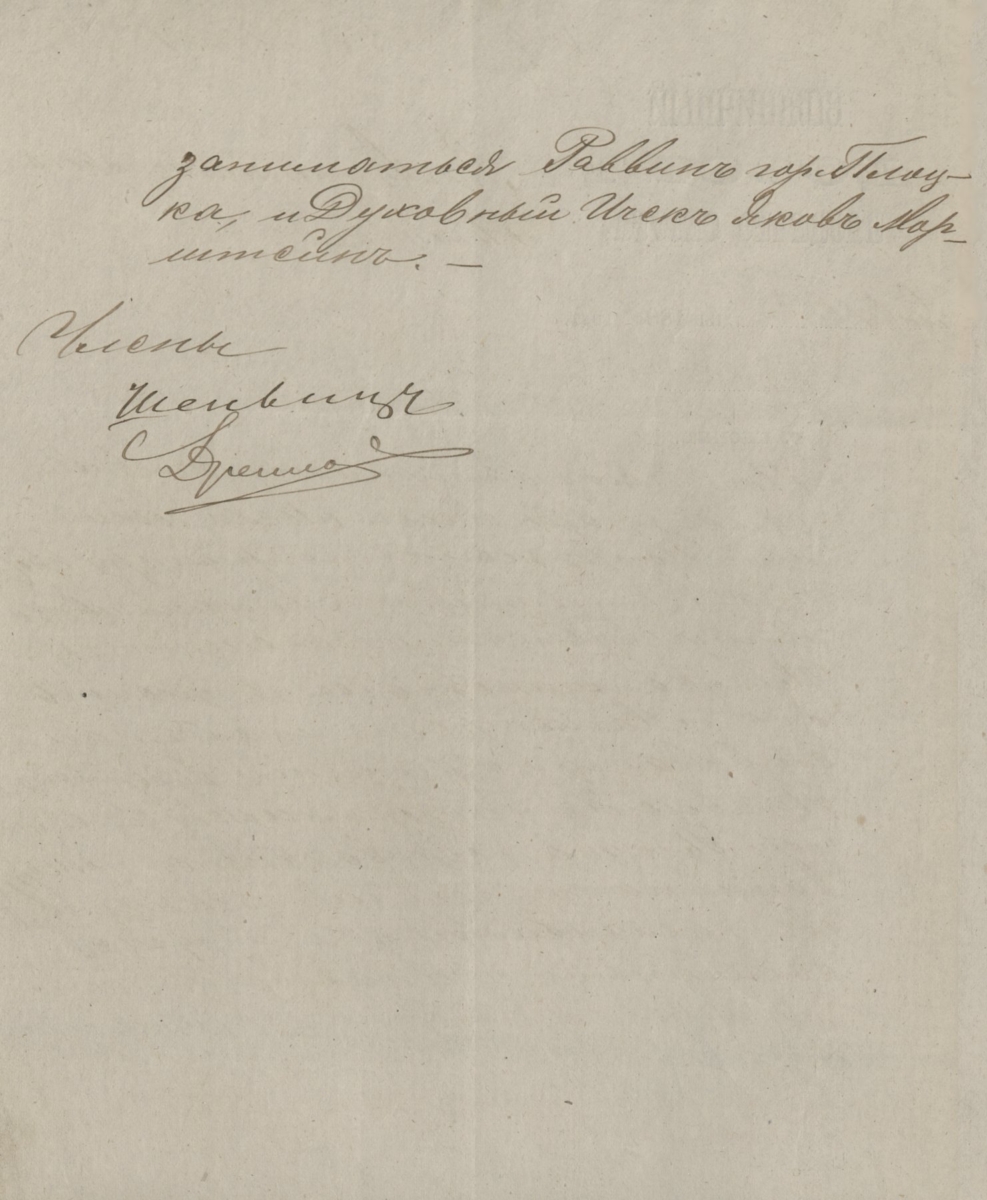 заниматься Раввинъ гор. Плоц-
ка, и Духовный Ичекъ Яковъ Мор-
штейнъ. —
Члены